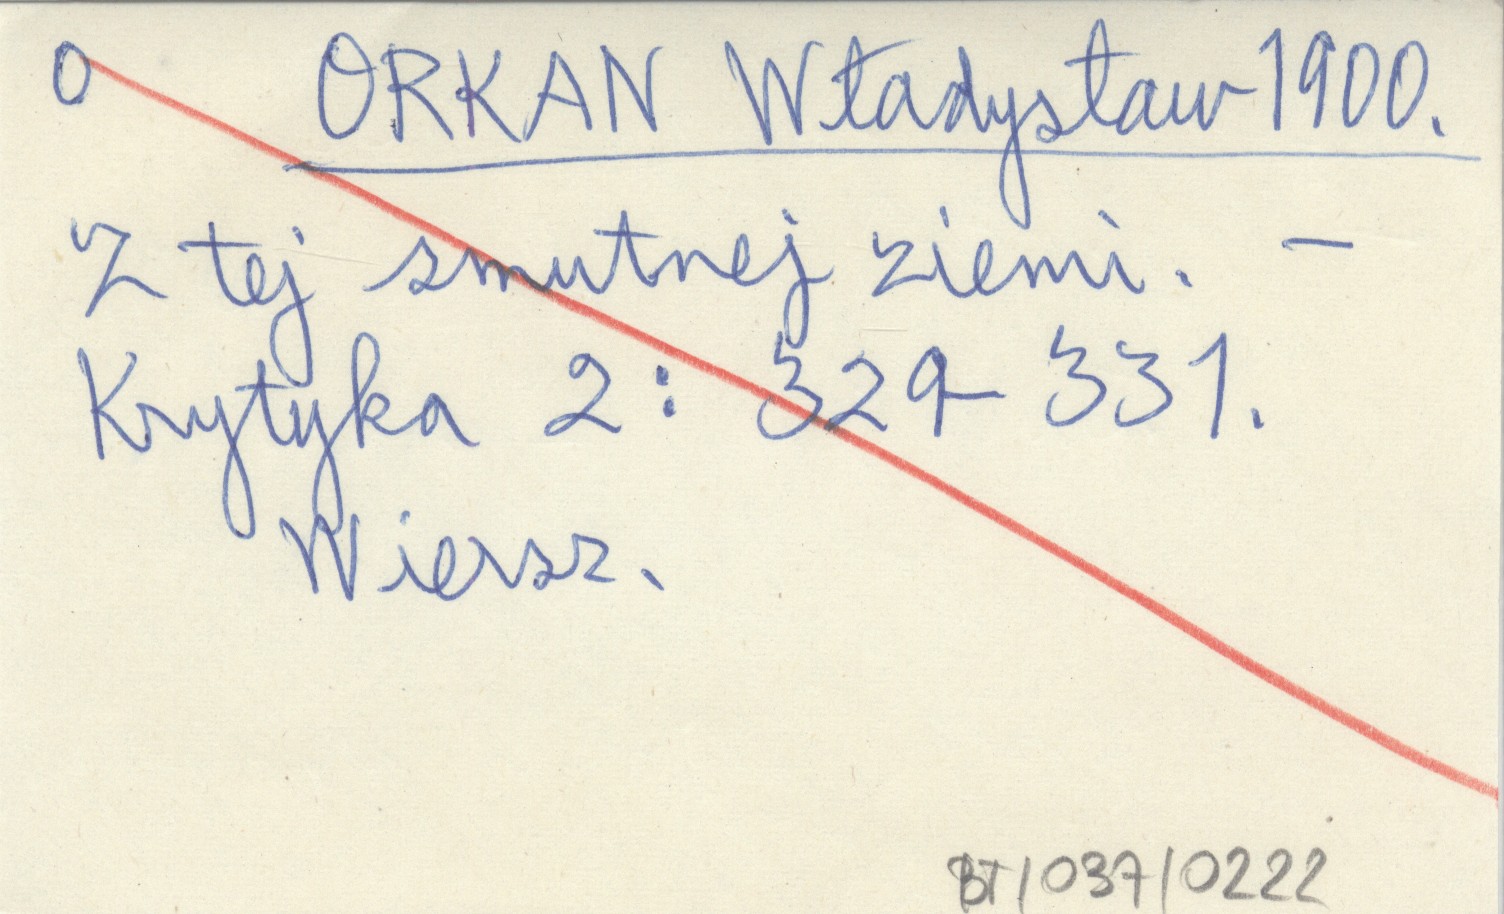 O ORKAN Władysław 1900.
Z tej smutnej ziemi. —
Krytyka 2: 329-331.
Wiersz.
BT/037/0222